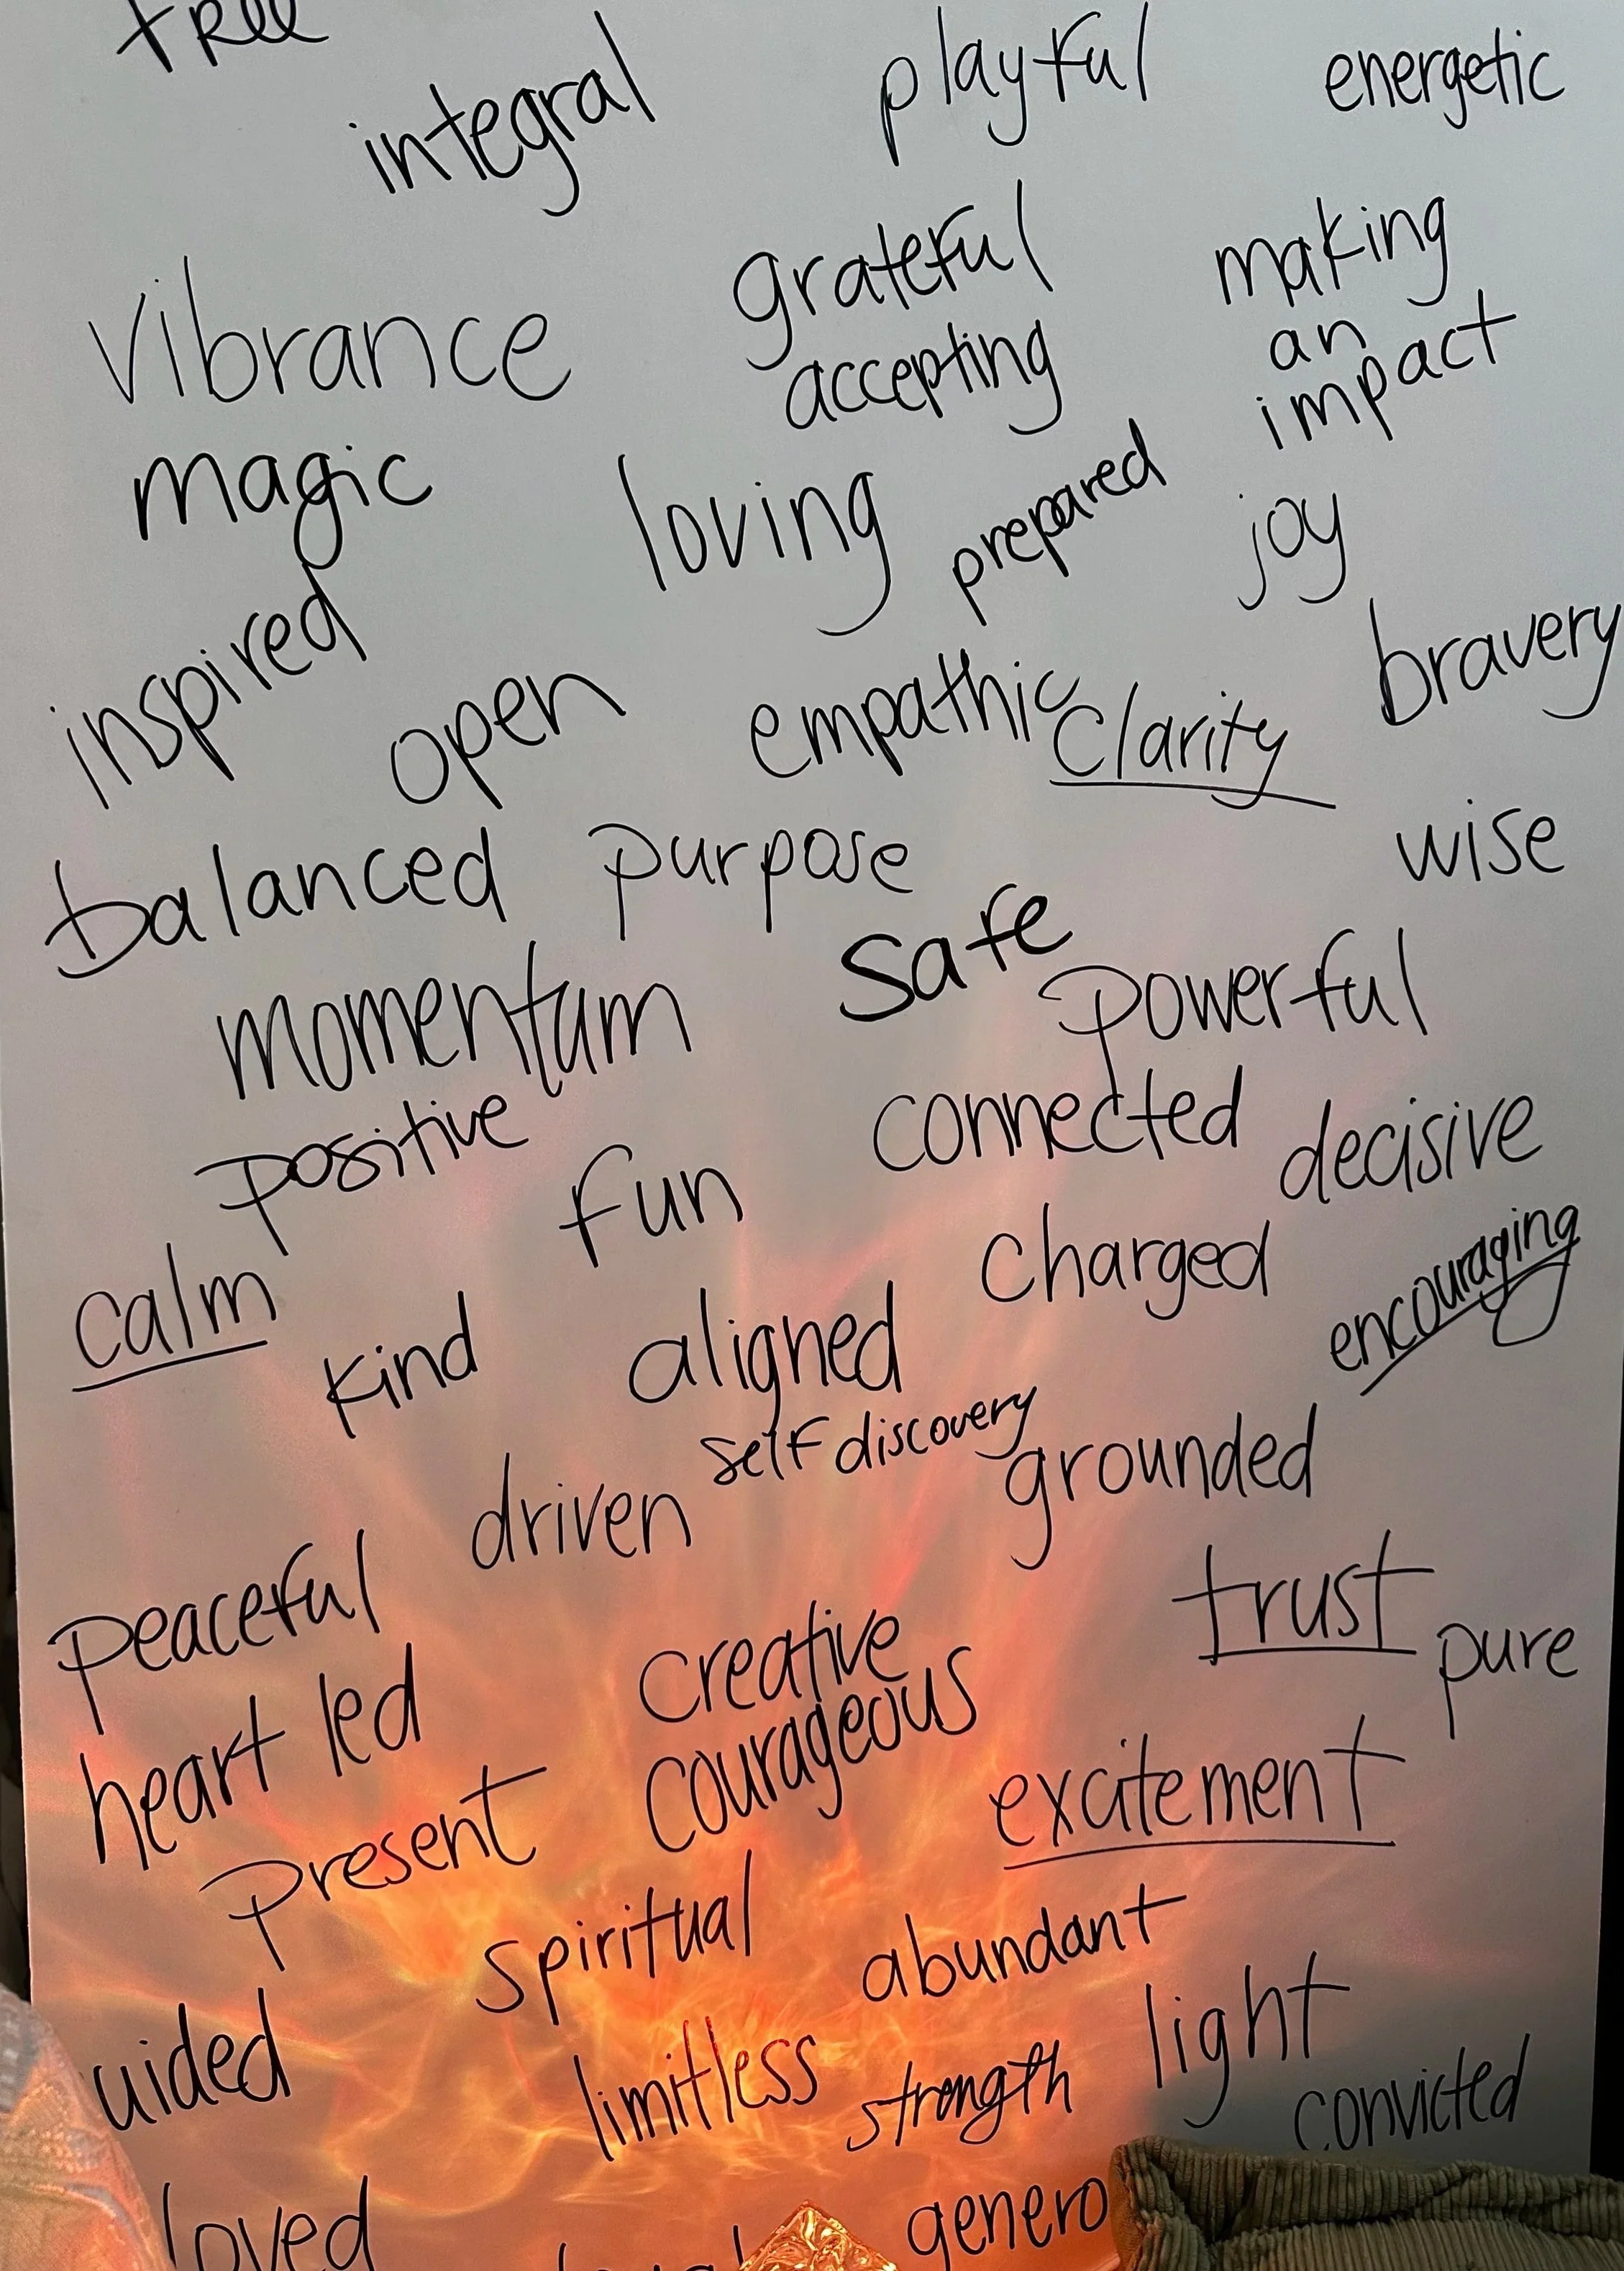 free
integral
playful
energetic
grateful
making
an
impact
vibrance
accepting
magic
loving
prepared
joy
inspired
open
empathic
clarity
bravery
balanced
purpose
wise
safe
momentum
powerful
positive
fun
connected
decisive
calm
kind
aligned
charged
encouraging
self discovery
driven
grounded
peaceful
trust
pure
heart led
creative
courageous
present
excitement
spiritual
abundant
uided
limitless
strength
light
convicted
loved
genero